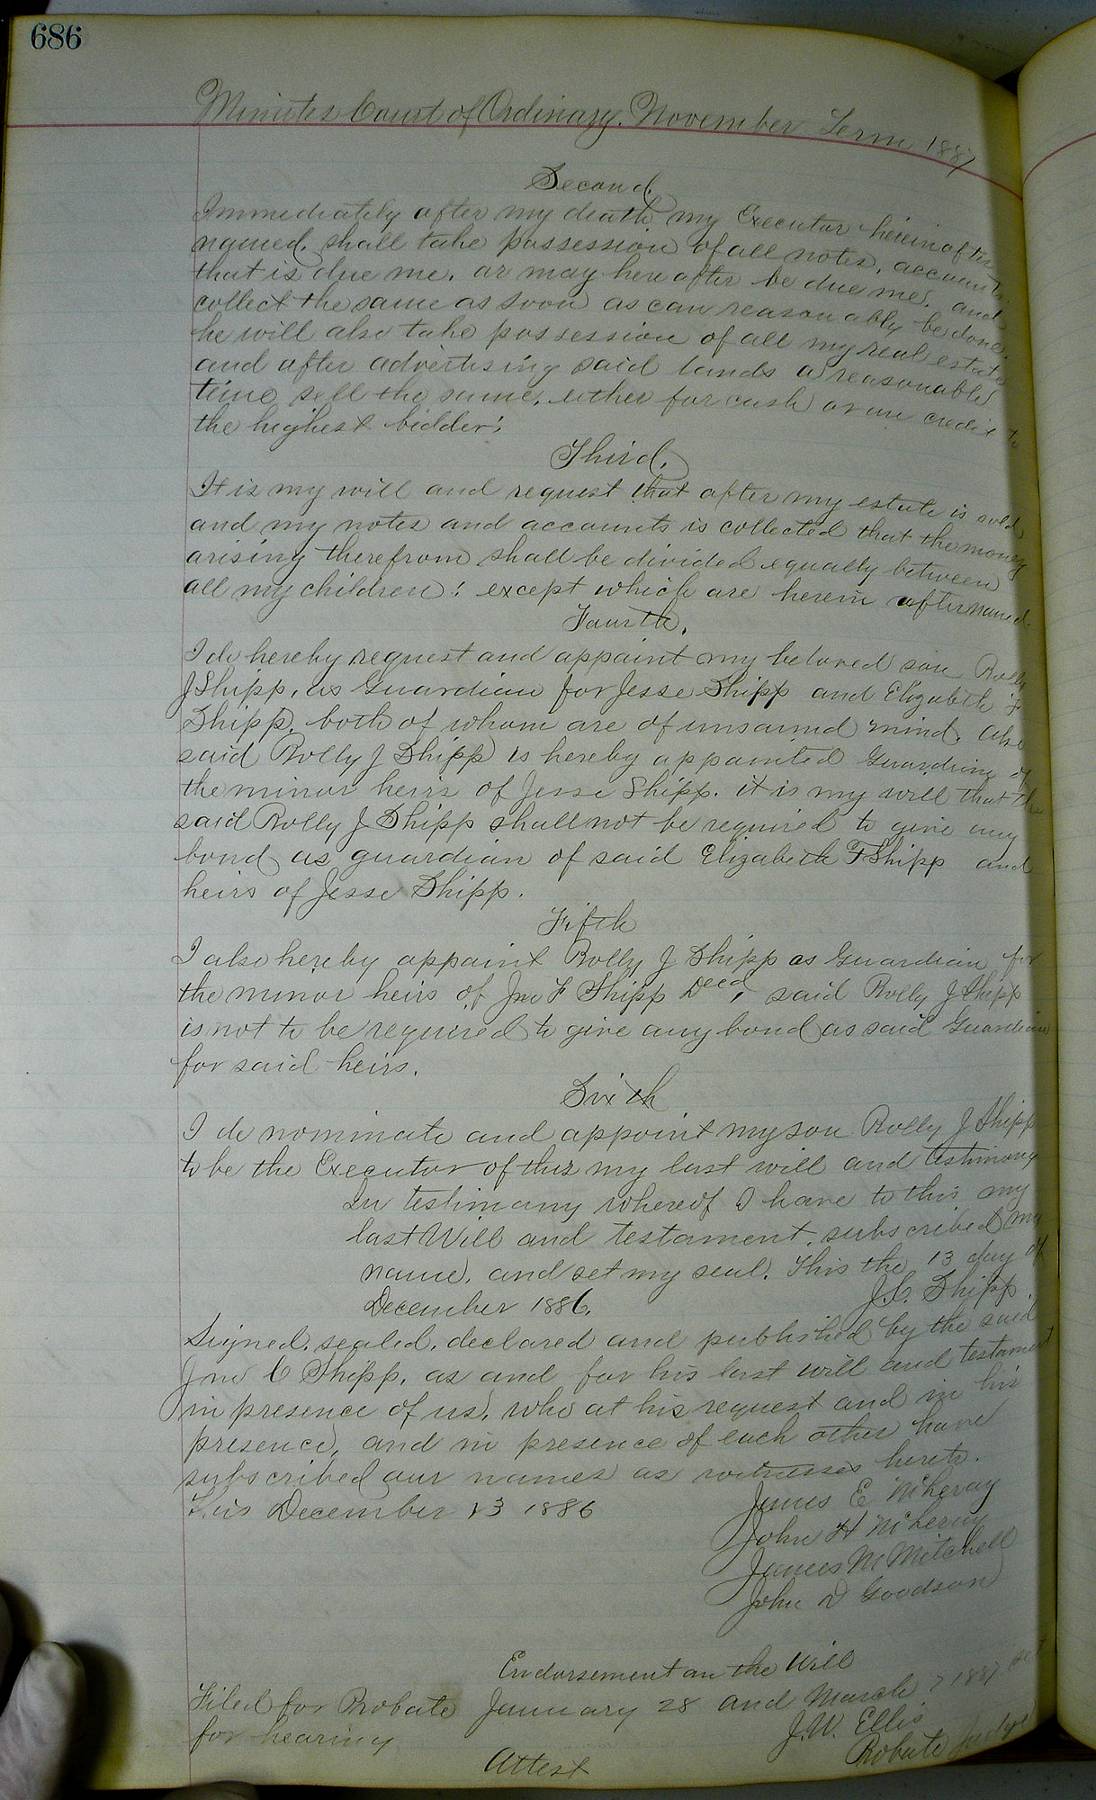 686
Minutes Court of Ordinary. November Term 1887
Second.
Immediately after my death, my Executor hereinafter
named, shall take possession of all notes, accounts
that is due me, or may hereafter be due me, and
collect the same as soon as can reasonably be done.
he will also take possession of all my real estate
and after advertising said lands a reasonable
time sell the same, either for cash or on credit to
the highest bidder;
Third,
It is my will and request that after my estate is sold
and my notes and accounts is collected that the money
arising therefrom shall be divided equally between
all my children: except which are herein afternamed.
Fourth.
I do hereby request and appoint my beloved son Rolly
J Shipp, as Guardian for Jesse Shipp and Elizabeth F
Shipp, both of whom are of unsound mind, also
said Rolly J Shipp is hereby appointed Guardian of
the minor heirs of Jesse Shipp. it is my will that the
said Rolly J Shipp shall not be required to give any
bond as guardian of said Elizabeth F Shipp and
heirs of Jesse Shipp.
Fifth
I also hereby appoint Rolly J Shipp as Guardian for
the minor heirs of Jno F Shipp Decd, said Rolly J Shipp
is not to be required to give any bond as said Guardian
for said heirs.
Sixth
I do nominate and appoint my son Rolly J Shipp
to be the Executor of this my last will and testimony
In testimony whereof I have to this my
last Will and testament, subscribed my
name, and set my seal. This the 13 day of
December 1886.
J.C. Shipp.
Signed, sealed, declared and published by the said
Jno C Shipp, as and for his last will and testament
in presence of us, who at his request and in his
presence, and in presence of each other have
subscribed our names as witnesses hereto.
This December 13 1886
James E McLeroy
John H McLeroy
James M Mitchell
John D Goodson
Endorsement on the Will
Filed for Probate January 28 and March 7 1887 set
for hearing
J.W. Ellis
Probate Judge
Attest